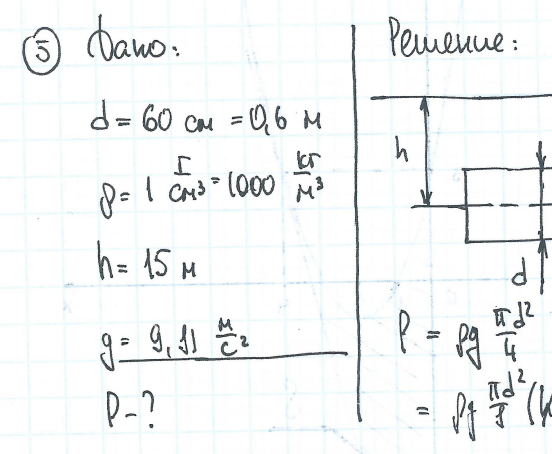 5 Дано:
d = 60 см = 0,6 м
ρ = 1 Г/см³ = 1000 кг/м³
h = 15 м
g = 9,81 м/с²
P - ?
Решение:
h
d
P = ρg πd²/4
= ρg πd²/8 (4